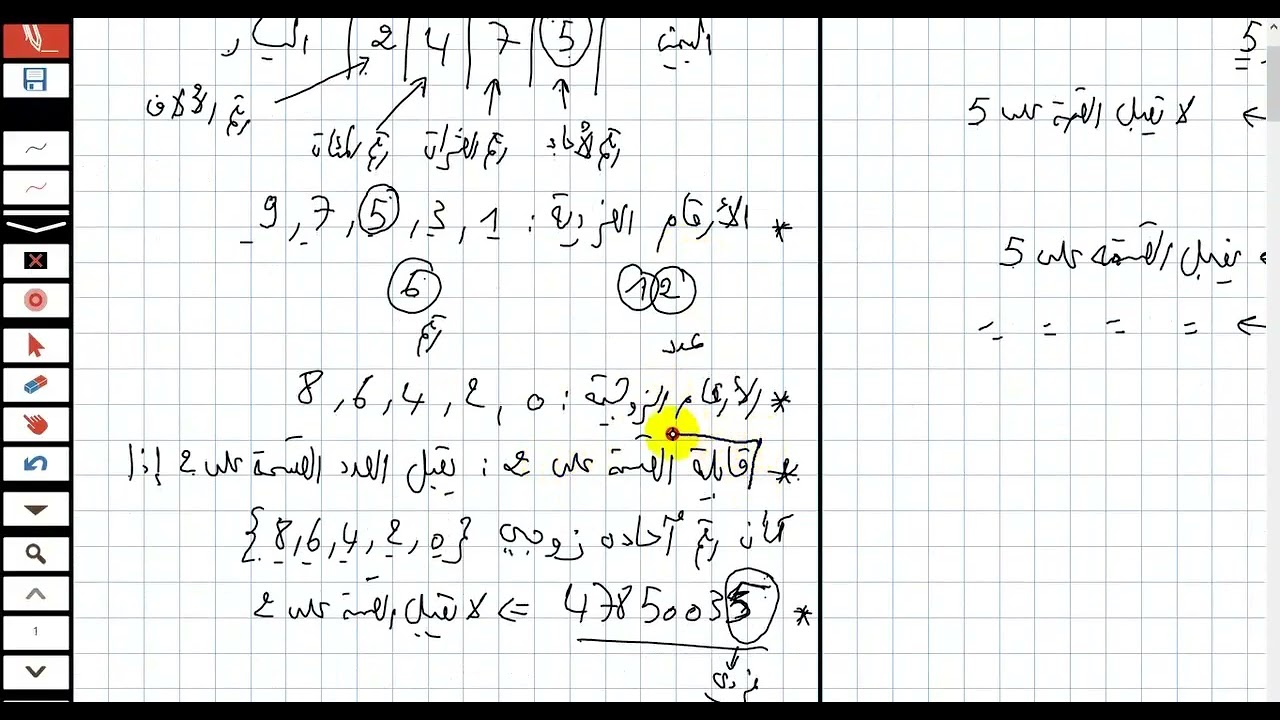 اليمين | 5 | 7 | 4 | 2 | اليسار
رقم الآحاد رقم العشرات رقم المئات رقم الآلاف
* الأرقام الفردية : 1 , 3 , 5 , 7 , 9
12 6
عدد رقم
* الأرقام الزوجية : 0 , 2 , 4 , 6 , 8
* قابلية القسمة على 2 : يقبل العدد القسمة على 2 إذا
كان رقم آحاده زوجي {0,2,4,6,8}
* 47850035 => لا تقبل القسمة على 2
فردي
5
<= لا تقبل القسمة على 5
تقبل القسمة على 5
<= = = = =
1